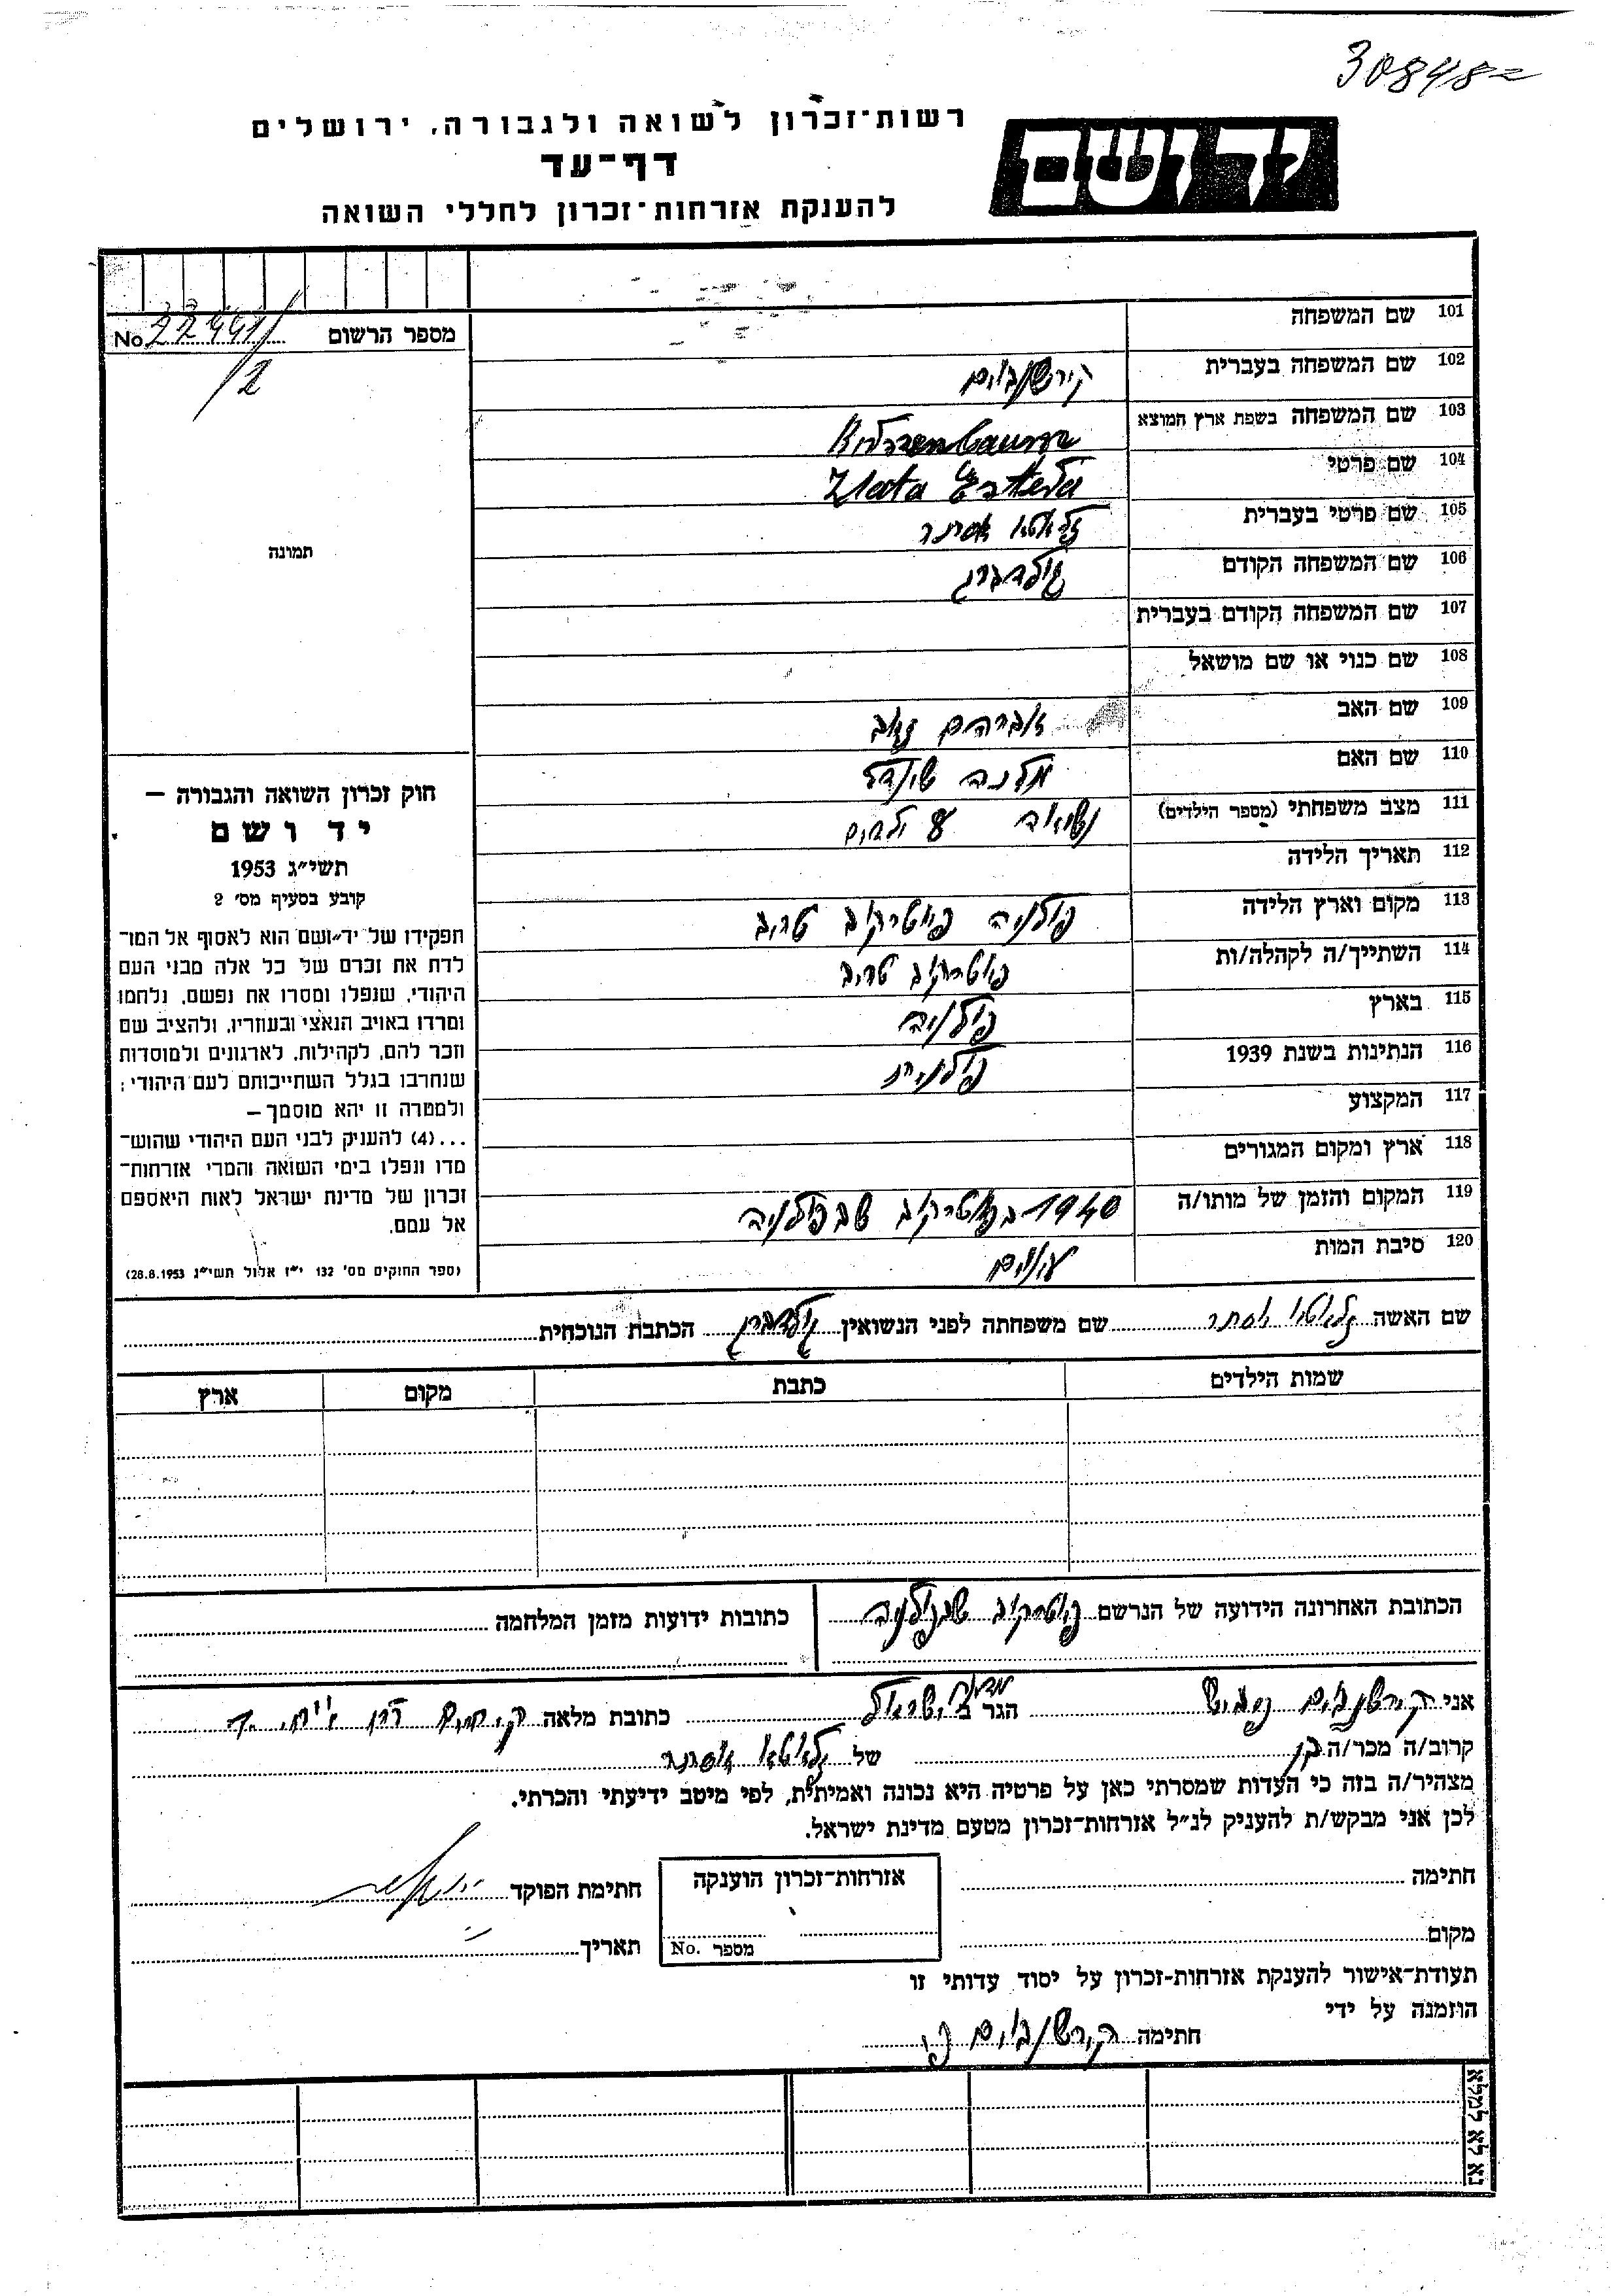 30848
רשות־זכרון לשואה ולגבורה, ירושלים
דף־עד
להענקת אזרחות־זכרון לחללי השואה
יד ושם
מספר הרשום No 22441/2
תמונה
חוק זכרון השואה והגבורה –
יד ושם
תשי״ג 1953
קובע בסעיף מס׳ 2
תפקידו של יד־ושם הוא לאסוף אל המו־
לדת את זכרם של כל אלה מבני העם
היהודי, שנפלו ומסרו את נפשם, נלחמו
ומרדו באויב הנאצי ובעוזריו, ולהציב שם
וזכר להם, לקהילות, לארגונים ולמוסדות
שנחרבו בגלל השתייכותם לעם היהודי;
ולמטרה זו יהא מוסמך –
...(4) להעניק לבני העם היהודי שהוש־
מדו ונפלו בימי השואה והמרי אזרחות־
זכרון של מדינת ישראל לאות היאספם
אל עמם.
(ספר החוקים מס׳ 132 י״ז אלול תשי״ג 28.8.1953)
101 שם המשפחה
102 שם המשפחה בעברית קירשנבוים
103 שם המשפחה בשפת ארץ המוצא
104 שם פרטי Zlata Estera
105 שם פרטי בעברית זלאטא אסתר
106 שם המשפחה הקודם גולדברג
107 שם המשפחה הקודם בעברית
108 שם כנוי או שם מושאל
109 שם האב אברהם זאב
110 שם האם מלכה שינדל
111 מצב משפחתי (מספר הילדים) נשואה 8 ילדים
112 תאריך הלידה
113 מקום וארץ הלידה פולניה פיוטרקוב טריב
114 השתייך/ה לקהלה/ות פיוטרקוב טריב
115 בארץ פולניה
116 הנתינות בשנת 1939 פולנית
117 המקצוע
118 ארץ ומקום המגורים
119 המקום והזמן של מותו/ה 1940 בפיוטרקוב שבפולניה
120 סיבת המות
שם האשה זלאטא אסתר שם משפחתה לפני הנשואין גולדברג הכתבת הנוכחית
שמות הילדים כתבת מקום ארץ
הכתובת האחרונה הידועה של הנרשם פיוטרקוב שבפולניה כתובות ידועות מזמן המלחמה
אני קירשנבוים הגר ב ישראל כתובת מלאה
קרוב/ה מכר/ה בן של זלאטא אסתר
מצהיר/ה בזה כי העדות שמסרתי כאן על פרטיה היא נכונה ואמיתית, לפי מיטב ידיעתי והכרתי.
לכן אני מבקש/ת להעניק לנ״ל אזרחות־זכרון מטעם מדינת ישראל.
חתימה אזרחות־זכרון הוענקה חתימת הפוקד
מקום מספר No. תאריך
תעודת־אישור להענקת אזרחות־זכרון על יסוד עדותי זו
הוזמנה על ידי
חתימה קירשנבוים
נא לא למלא